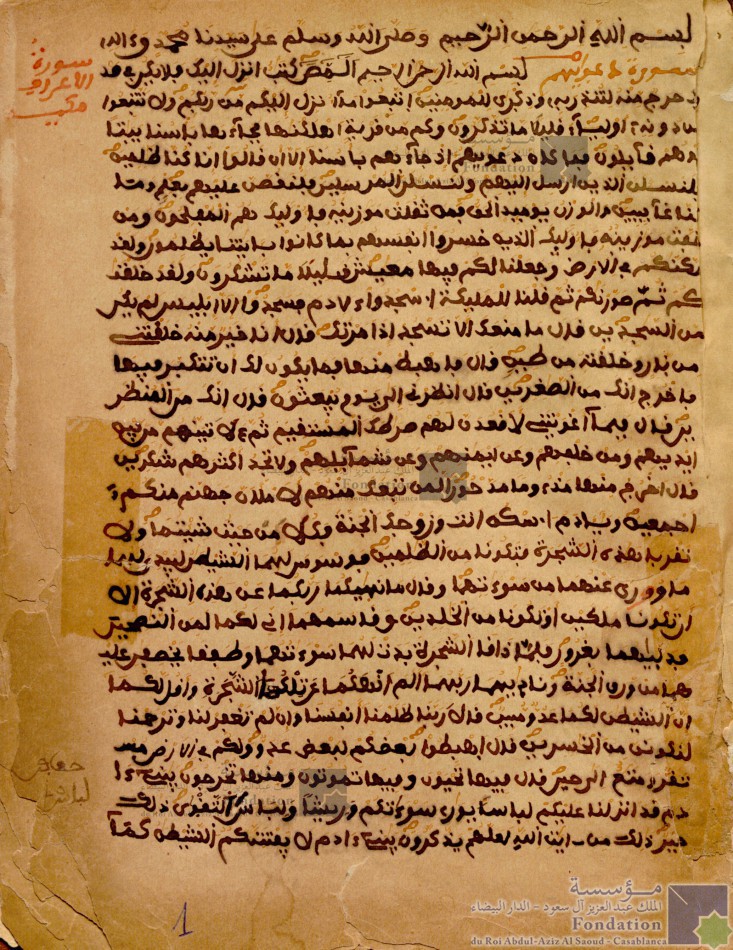 بسم الله الرحمن الرحيم وصلى الله وسلم على سيدنا محمد وءاله
سورة
الاعراف
مكية
بسم الله الرحمن الرحيم المص كتب انزل اليك فلا يكن في صد
حرج منه لتنذر به وذكرى للمومنين اتبعوا ما انزل اليكم من ربكم ولا تتبعوا
من دونه اولياء قليلا ما تذكرون وكم من قرية اهلكنها فجاءها باسنا بيتا
او هم قايلون فما كان دعويهم اذ جاءهم باسنا الا ان قالوا انا كنا ظلمين
فلنسلن الذين ارسل اليهم ولنسلن المرسلين فلنقصن عليهم بعلم وما
كنا غايبين والوزن يوميذ الحق فمن ثقلت موزينه فاوليك هم المفلحون ومن
خفت موزينه فاوليك الذين خسروا انفسهم بما كانوا بايتنا يظلمون ولقد
مكنكم في الارض وجعلنا لكم فيها معيش قليلا ما تشكرون ولقد خلقنا
كم ثم صورنكم ثم قلنا للمليكة اسجدوا لادم فسجدوا الا ابليس لم يكن
من السجدين قال ما منعك الا تسجد اذ امرتك قال انا خير منه خلقتني
من نار وخلقته من طين قال فاهبط منها فما يكون لك ان تتكبر فيها
فاخرج انك من الصغرين قال انظرني الى يوم يبعثون قال انك من المنظر
ين قال فبما اغويتني لاقعدن لهم صرطك المستقيم ثم لاتينهم من بين
ايديهم ومن خلفهم وعن ايمنهم وعن شمايلهم ولا تجد اكثرهم شكرين
قال اخرج منها مذءوما مدحورا لمن تبعك منهم لاملان جهنم منكم
اجمعين ويادم اسكن انت وزوجك الجنة فكلا من حيث شيتما ولا
تقربا هذه الشجرة فتكونا من الظلمين فوسوس لهما الشيطن ليبدي لهما
ما ووري عنهما من سوءتهما وقال ما نهيكما ربكما عن هذه الشجرة الا
ان تكونا ملكين او تكونا من الخلدين وقاسمهما اني لكما لمن النصحين
فدليهما بغرور فلما ذاقا الشجرة بدت لهما سوءتهما وطفقا يخصفن عليـ
هما من ورق الجنة وناديهما ربهما الم انهكما عن تلكما الشجرة واقل لكما
ان الشيطن لكما عدو مبين قالا ربنا ظلمنا انفسنا وان لم تغفر لنا وترحمنا
لنكونن من الخسرين قال اهبطوا بعضكم لبعض عدو ولكم في الارض مسـ
تقر ومتع الى حين قال فيها تحيون وفيها تموتون ومنها تخرجون يبني ءا
دم قد انزلنا عليكم لباسا يوري سوءتكم وريشا ولباس التقوى ذلك
خير ذلك من ايت الله لعلهم يذكرون يبني ءادم لا يفتننكم الشيطن كما
1
مؤسسة
الملك عبد العزيز آل سعود - الدار البيضاء
Fondation
du Roi Abdul-Aziz Al Saoud - Casablanca